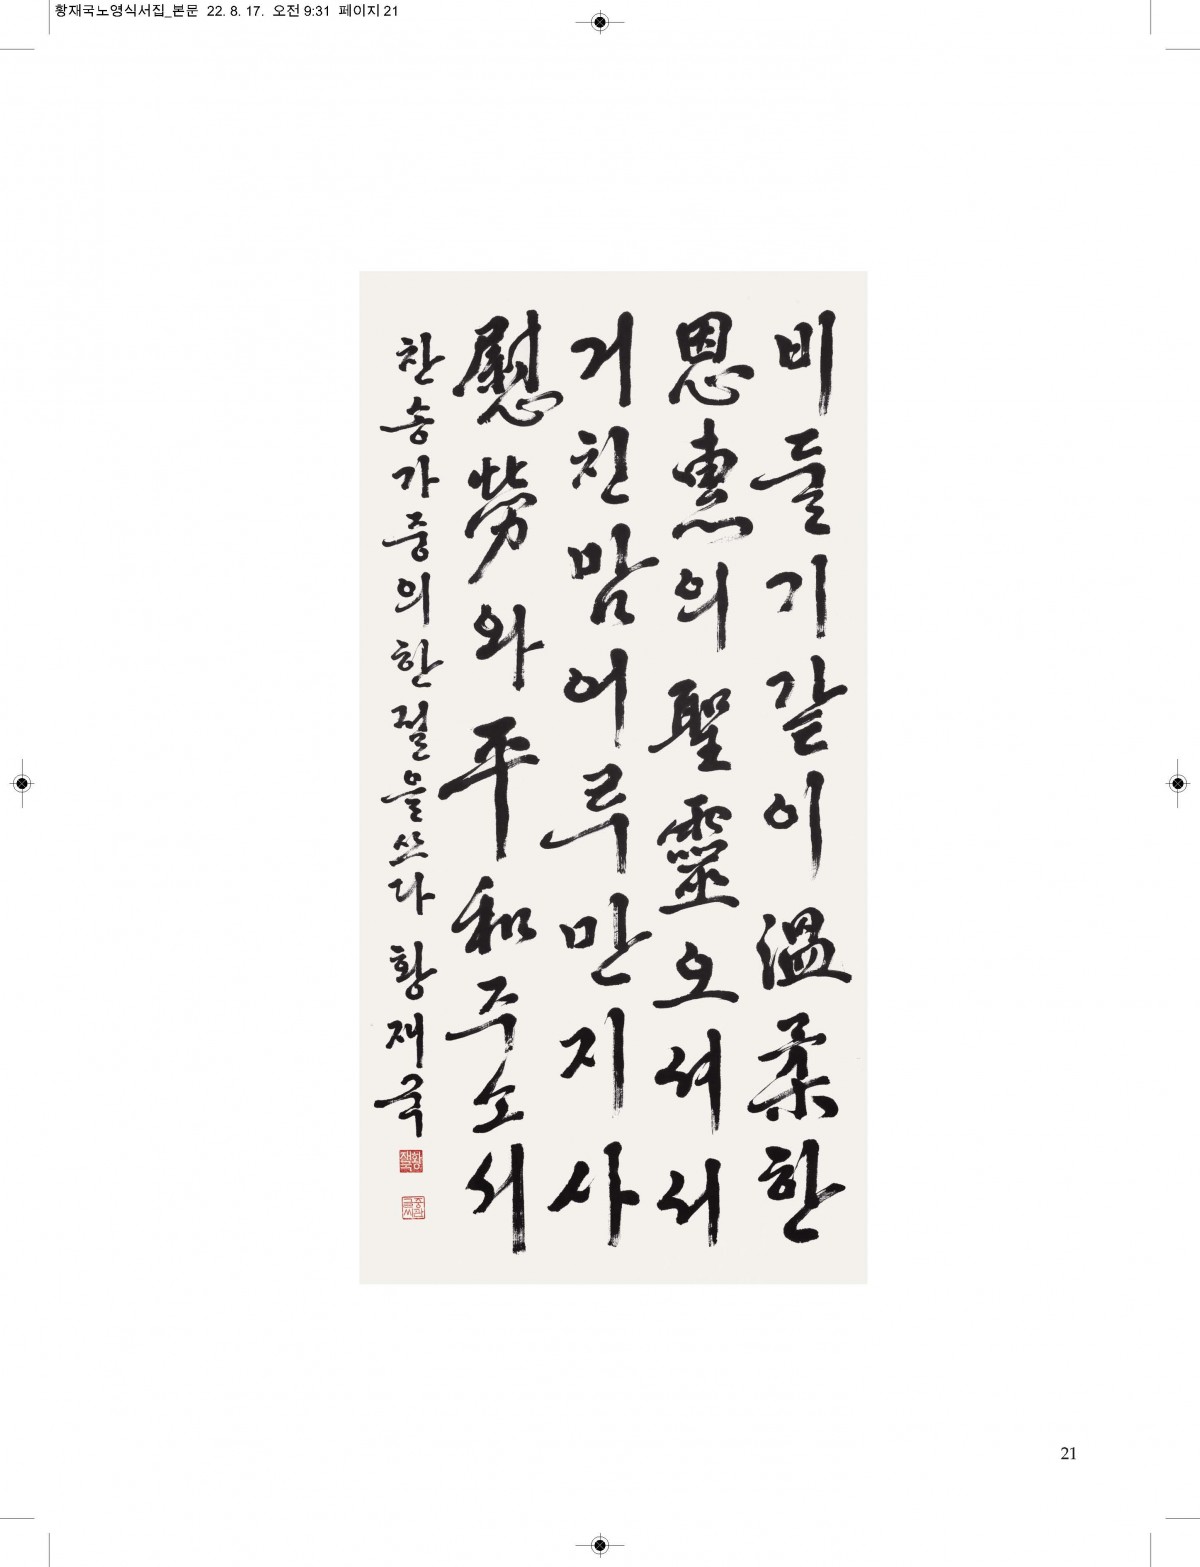 황재국노영식서집_본문 22. 8. 17. 오전 9:31 페이지 21
비들기같이溫柔한
恩惠의聖靈오셔서
거친맘어루만지사
慰勞와平和주소서
찬송가중의한절을쓰다 황재국
21